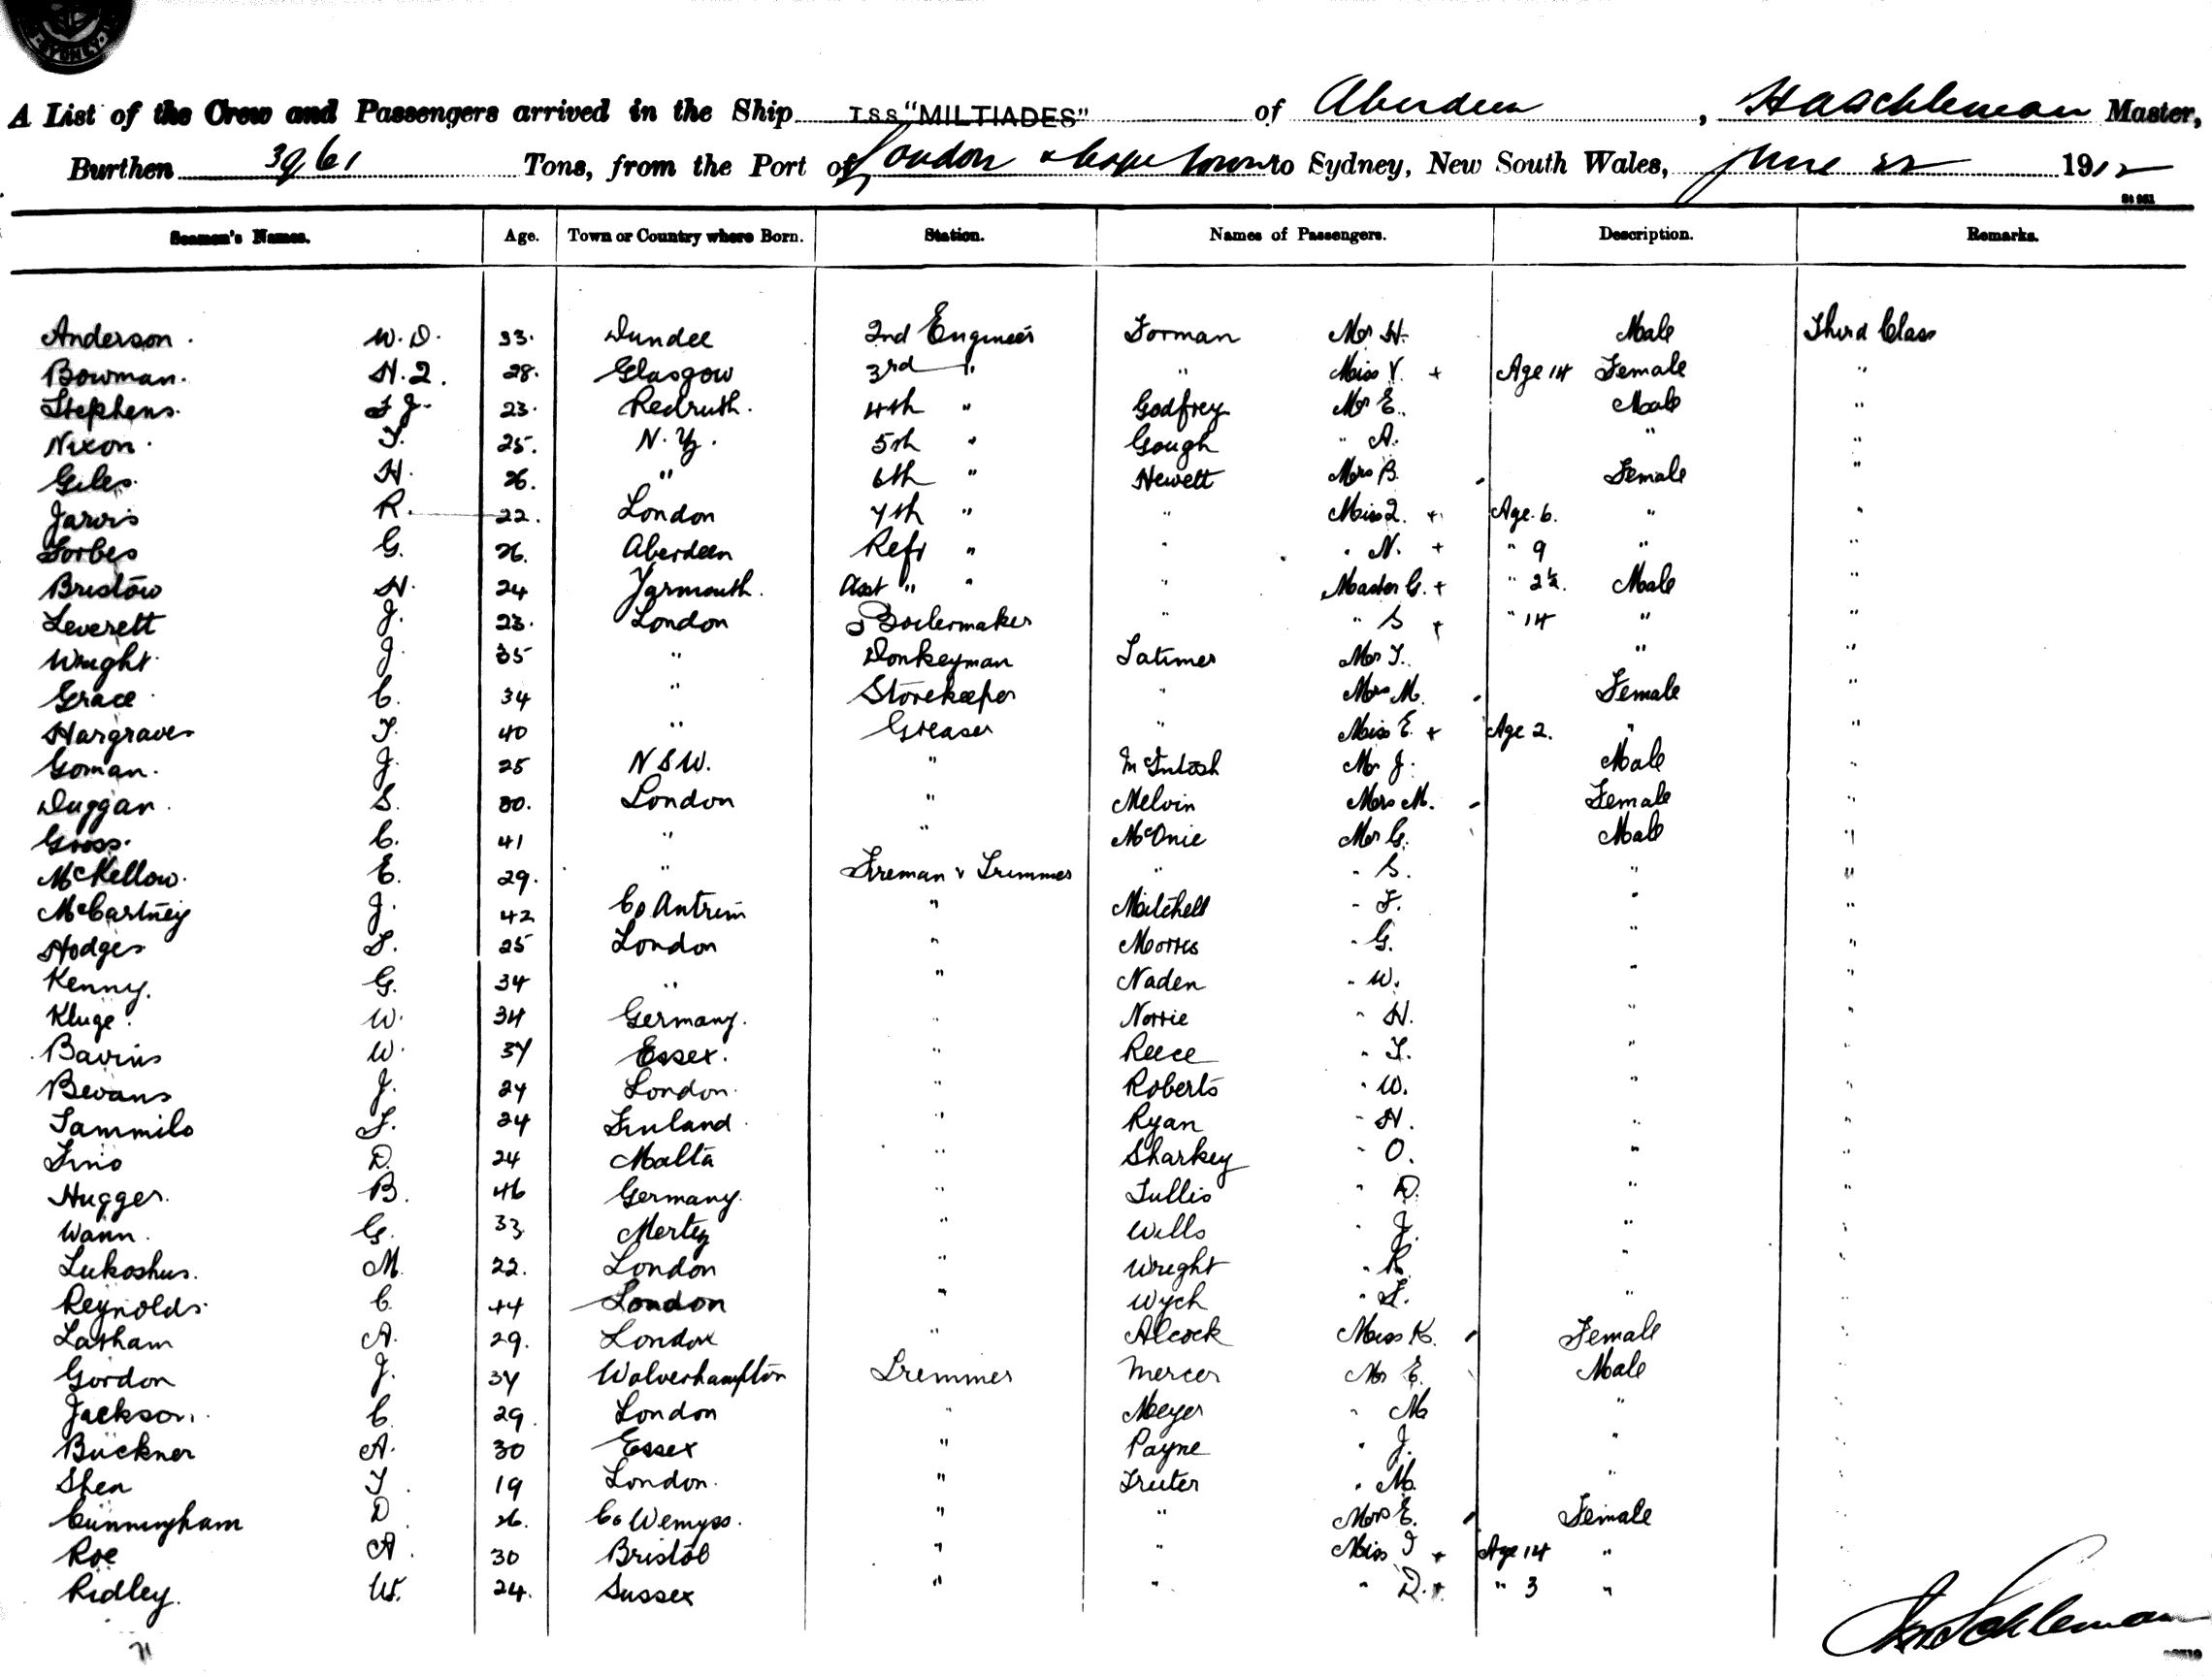 SYDNEY
A List of the Crew and Passengers arrived in the Ship TSS "MILTIADES" of Aberdeen, Master,
Burthen 3961 Tons, from the Port of London & Cape town to Sydney, New South Wales, June 22 1912
Seamen's Names. Age. Town or Country where Born. Station. Names of Passengers. Description. Remarks.
Anderson. W. D. 33. Dundee 2nd Engineer Forman Mr H. Male Third Class
Bowman. 28. Glasgow 3rd " " Miss V. + Age 14 Female "
Stephens. F J. 23. Redruth. 4th " Godfrey Mr E. Male "
Nixon. T. 25. N. Z. 5th " Gough " A. " "
Giles. H. 26. " 6th " Hewett Mrs B. Female "
Jarvis R. 22. London 7th " " Miss + Age 6. " "
Forbes G. 26. Aberdeen Refr " " " N. + " 9 " "
Bristow H. 24 Yarmouth. Asst " " " Master G. + " 2½ Male "
Leverett J. 23. London Boilermaker " " S + " 14 " "
Wright J. 35 " Donkeyman Latimer Mr T. " "
Grace C. 34 " Storekeeper " Mrs M. Female "
Hargraves T. 40 " Greaser " Miss E. + Age 2. " "
Goman. J. 25 N S W. " McIntosh Mr J. Male "
Duggan. S. 30. London " Melvin Mrs M. Female "
Goss. C. 41 " " McOnie Mr G. Male "
McKellow. E. 29. " Fireman & Trimmer " " S. " "
McCartney J. 42 Co Antrim " Mitchell " F. " "
Hodges S. 25 London " Morris " G. " "
Kenny. G. 34 " " Naden " W. " "
Kluge. W. 34 Germany. " Norrie " H. " "
Bavins W. 37 Essex. " Reece " T. " "
Bevans J. 24 London. " Roberts " W. " "
Tammilo F. 24 Finland " Ryan " H. " "
D. 24 Malta " Sharkey " O. " "
Hugger. B. 46 Germany. " Tullis " D. " "
Wann. G. 33 " Wills " J. " "
Lukoshus. M. 22. London " Wright " R. " "
Reynolds. C. 44 London " Wych " " "
Latham A. 29. London " Alcock Miss K. Female "
Gordon J. 37 Wolverhampton Trimmer Mercer Mr E. Male "
Jackson. C. 29. London " Meyer " M " "
Buckner A. 30 Essex " Payne " J. " "
Shea T. 19 London. " Truter " M. " "
Cunningham D. 26. Co Wemyss. " " Mrs E. Female "
Roe A. 30 Bristol " " Miss I + Age 14 " "
Ridley. W. 24. Sussex " " " D. + " 3 " "
71